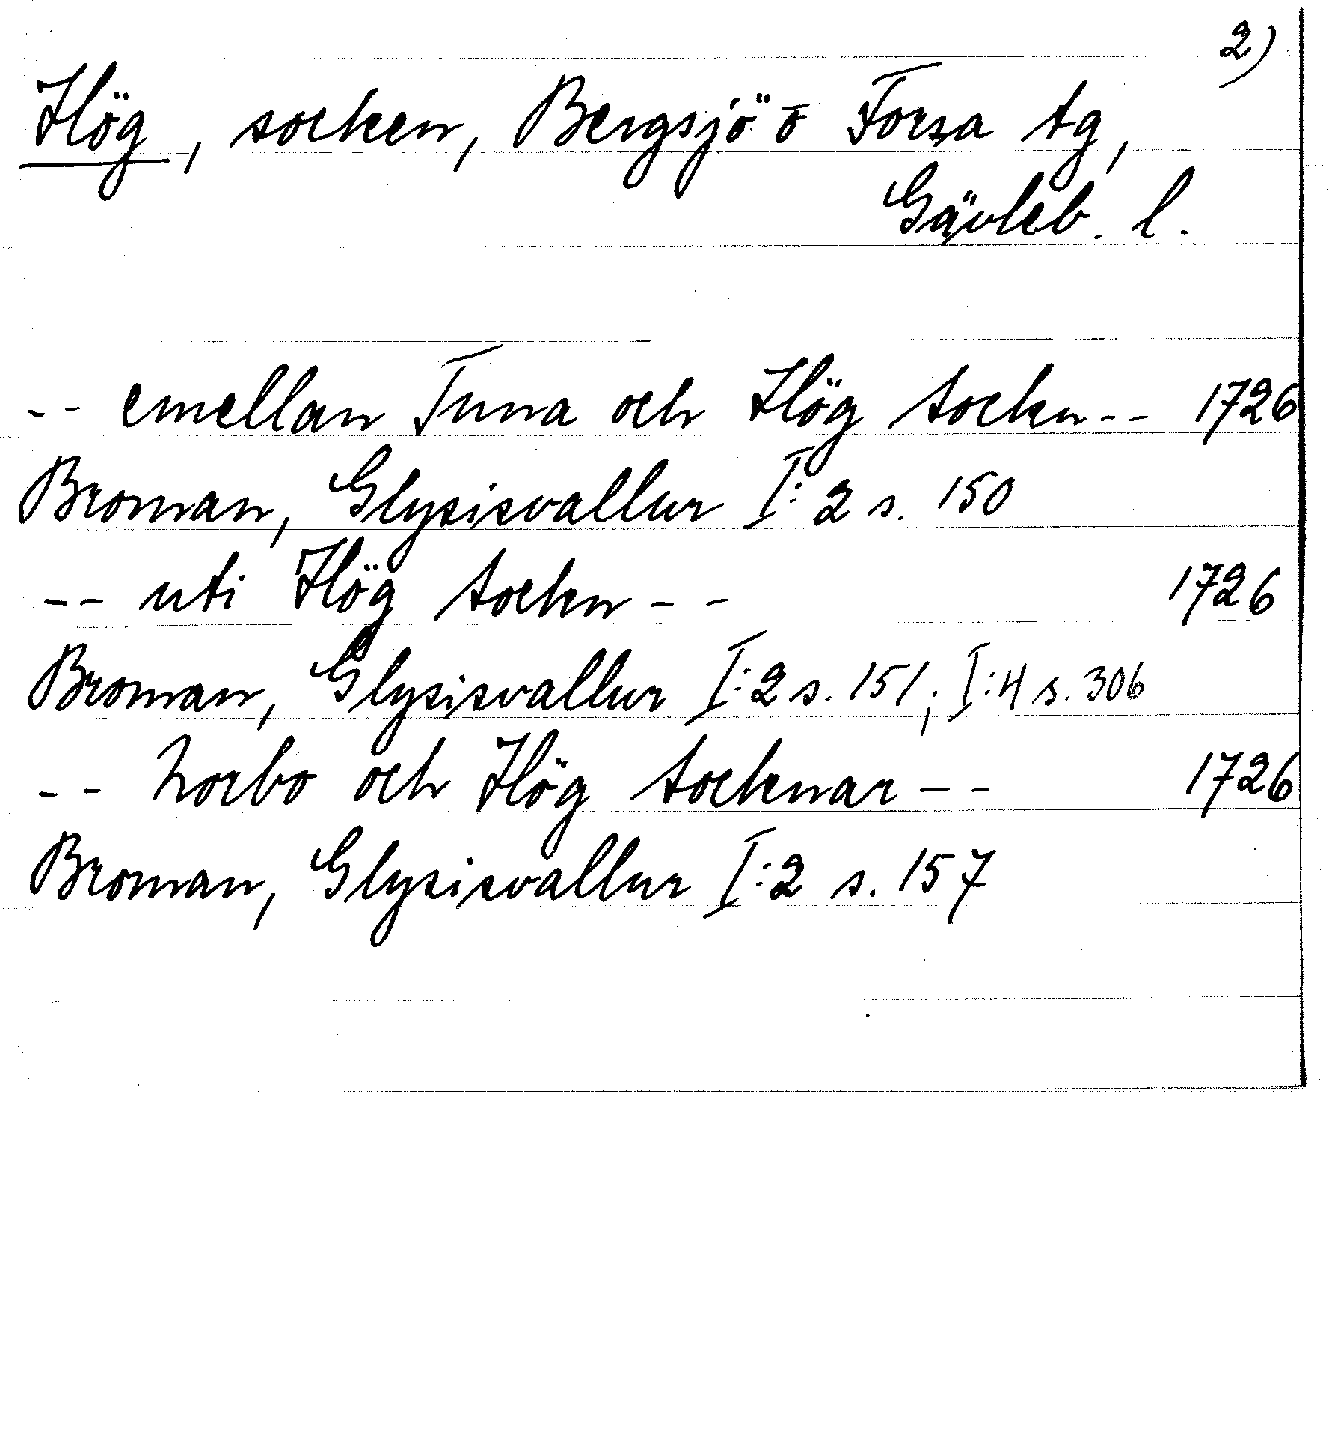 2)
Hög, socken, Bergsjö o Forsa tg,
Gävleb. l.
-- emellan Tuna och Hög Sockn -- 1726
Broman, Glysisvallur I:2 s. 150
-- uti Hög Sockn -- 1726
Broman, Glysisvallur I:2 s. 151; I:4 s. 306
-- Norbo och Hög Socknar -- 1726
Broman, Glysisvallur I:2 s. 157